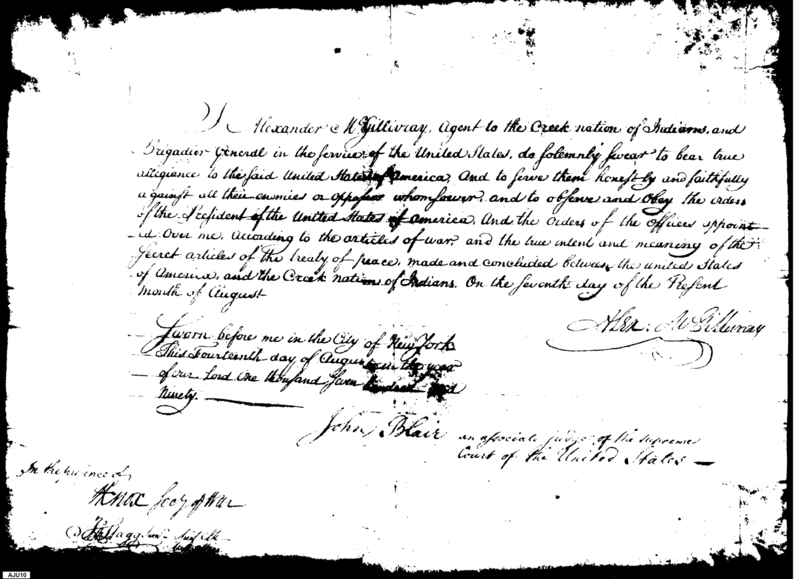 I Alexander McGillivray, Agent to the Creek nation of Indians, and
Brigadier General in the Service of the United States, do Solemnly Swear to bear true
allegiance to the said United States of America, And to Serve them honestly and faithfully
against all their enemies or opposers whomsoever, and to observe and Obey the orders
of the President of the United States of America, And the orders of the Officers appoint
ed Over me, According to the articles of war, and the true intent and meaning of the
Secret articles of the treaty of peace, made and concluded between the united States
of America, and the Creek nation of Indians, On the Seventh day of the Present
Month of August
Alex: McGillivray
Sworn before me in the City of New York
This Fourteenth day of August in the year
of our Lord One thousand Seven hundred and
Ninety.
John Blair an associate judge of the supreme
Court of the United States
In the presence of
HKnox Secy of War
AJU10